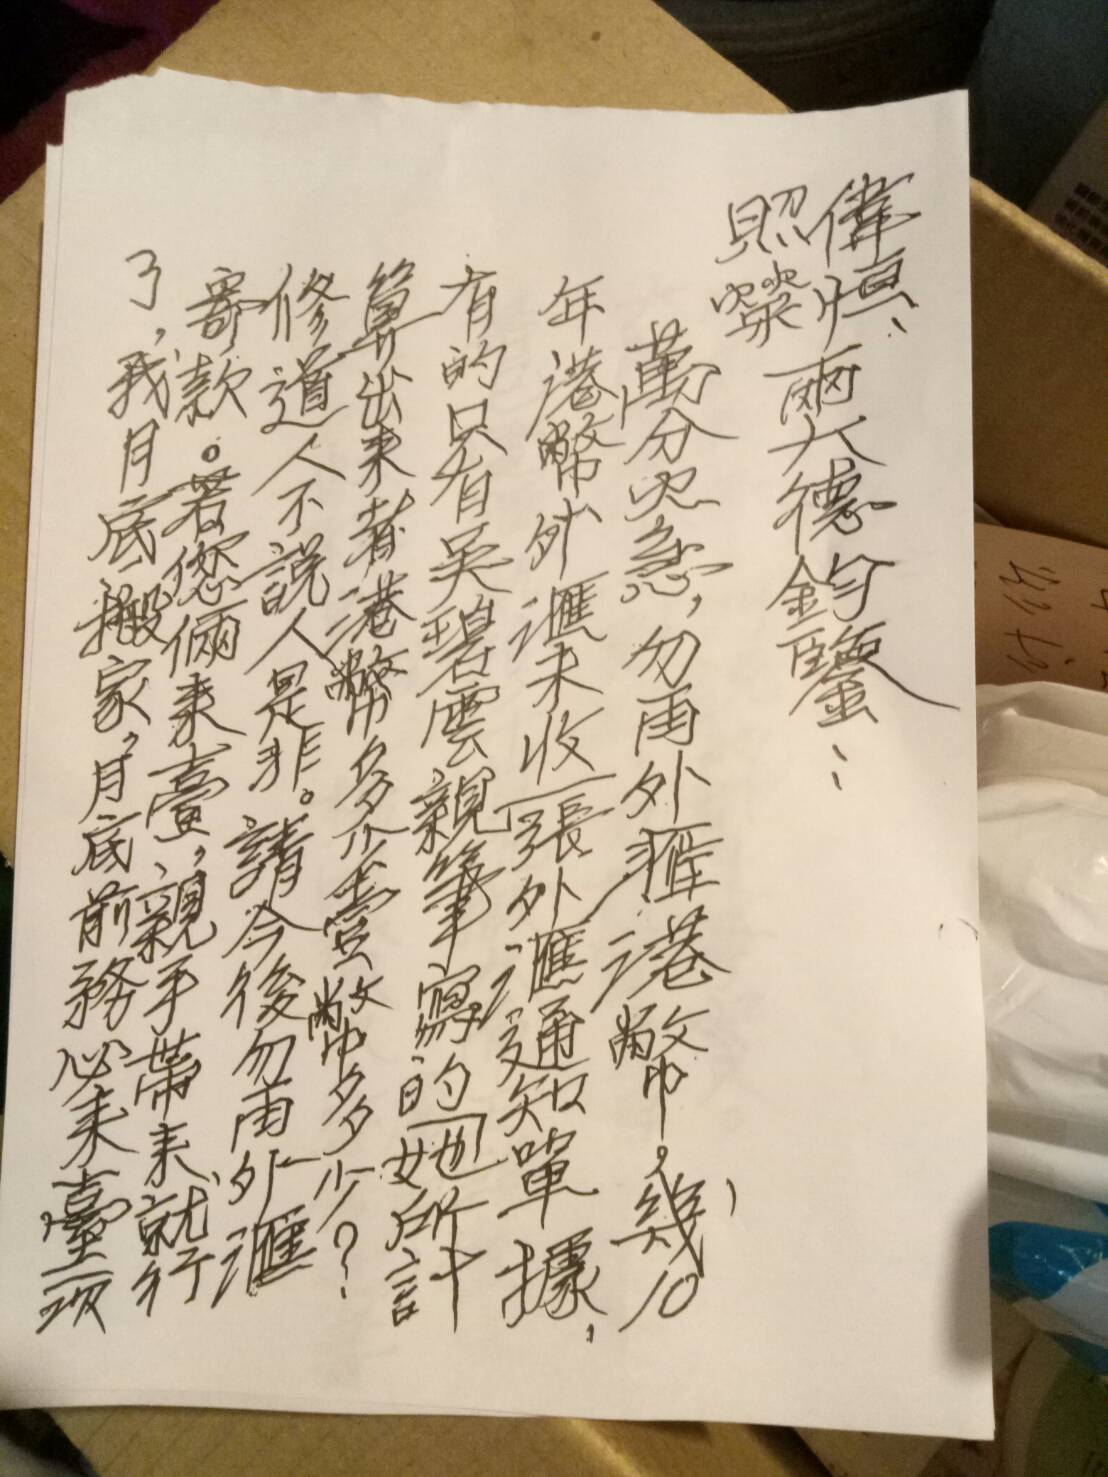 偉恒、
照燦 兩大德鈞鑒：
萬分火急，勿再外匯港幣。幾10
年港幣外滙未收一張外滙通知單據，
有的只有吳碧雲親筆寫的她所計
算出來着港幣多少臺幣多少？
修道人不說人是非。請今後勿再外滙
寄款。若您倆來臺，親手帶来就行
了，我月底搬家，月底前務必来臺一次